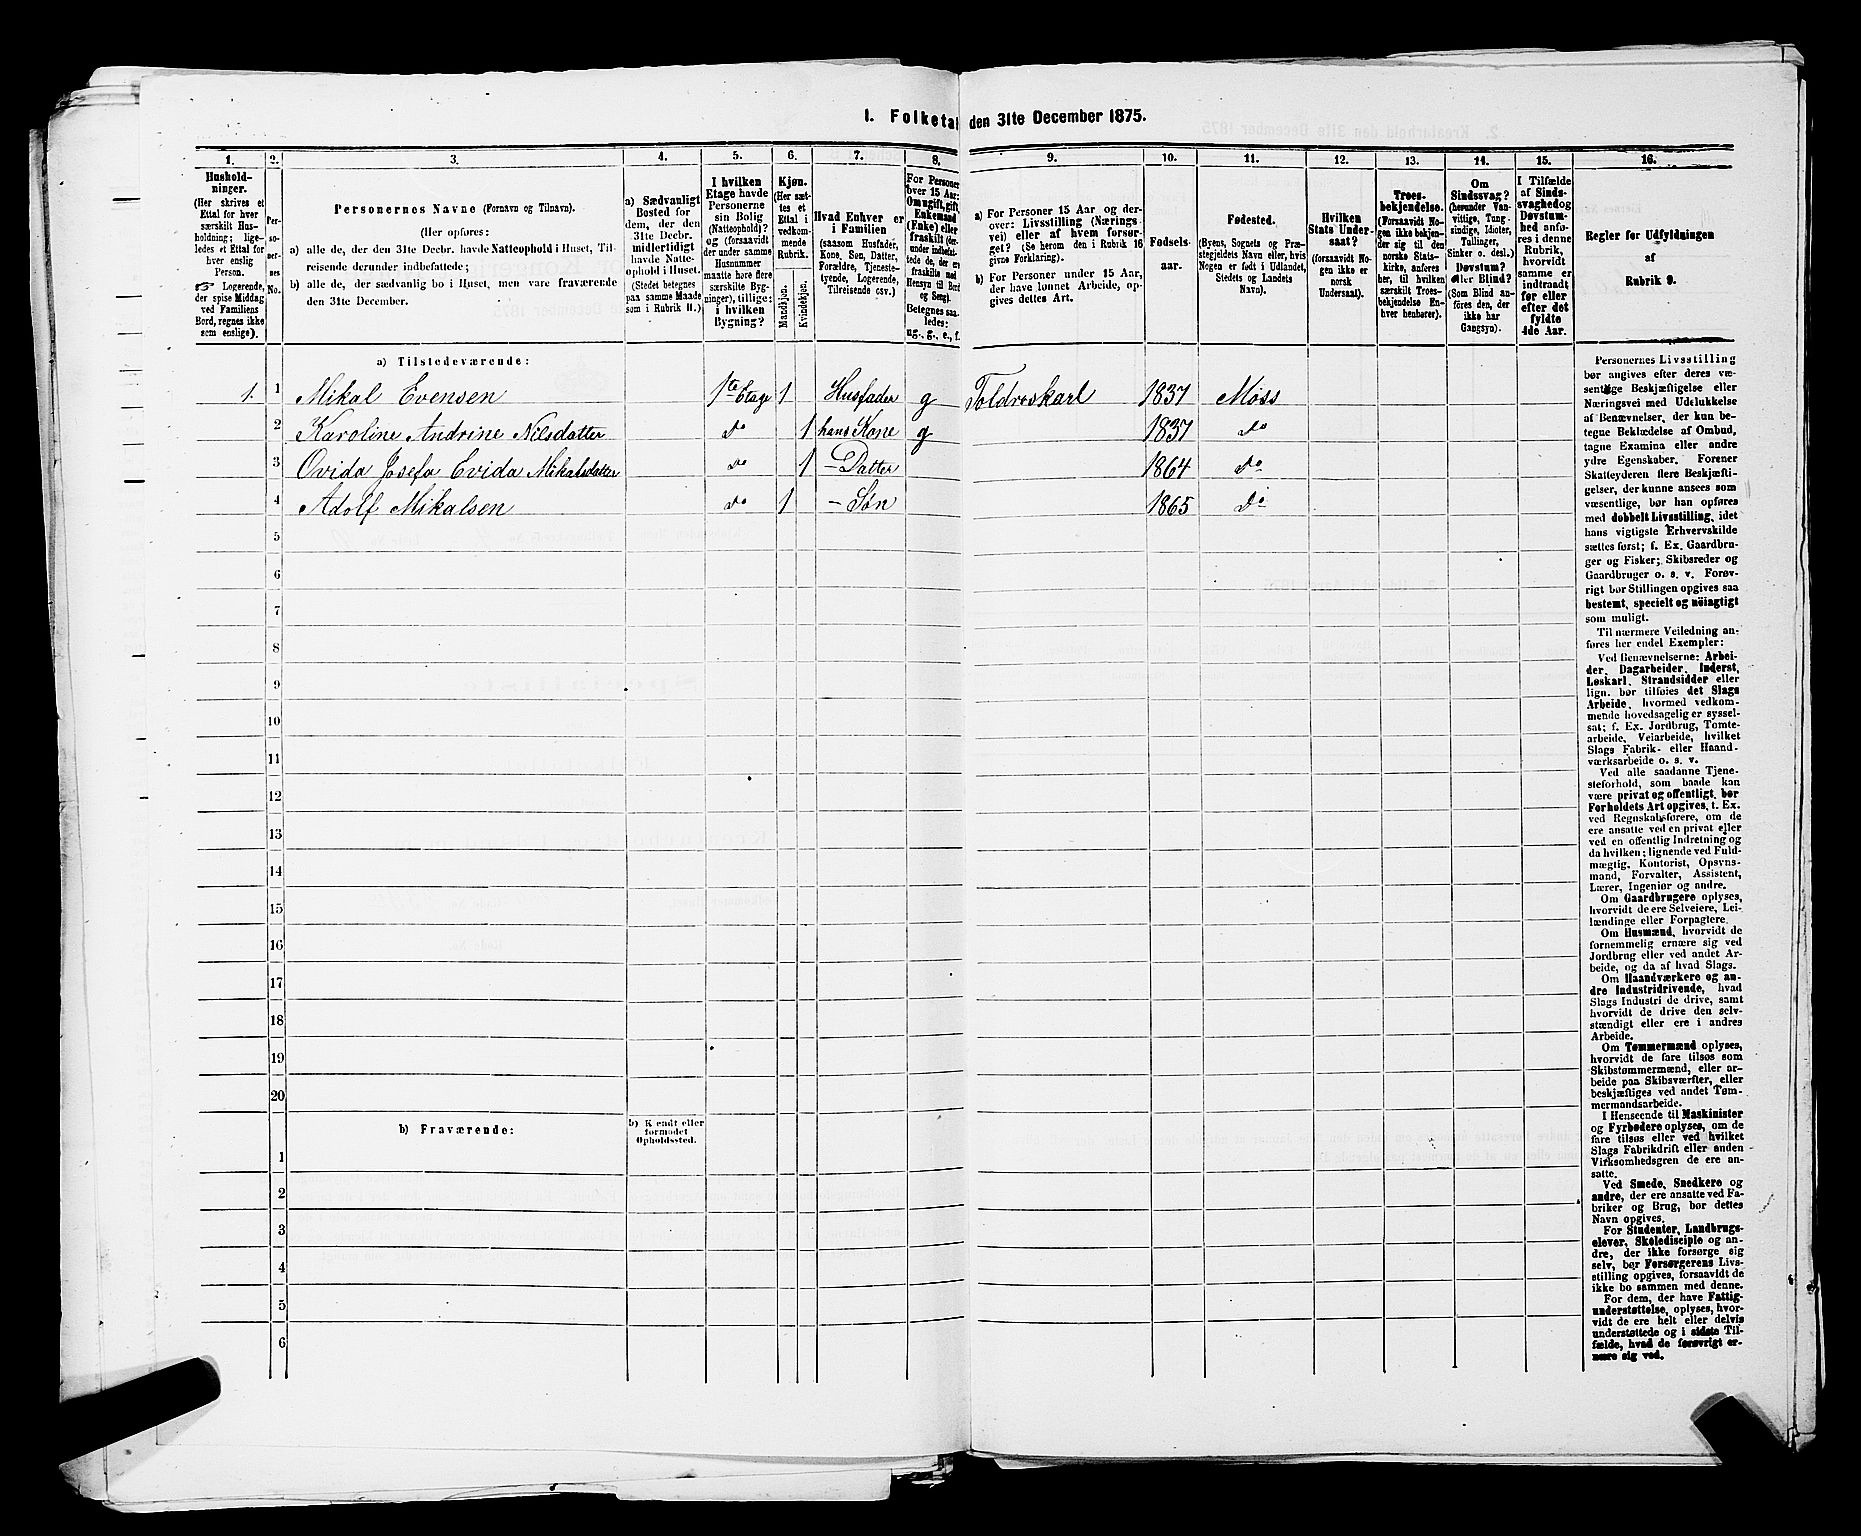 1. Folketal den 31te December 1875.
1. 2. 3. 4. 5. 6. 7. 8. 9. 10. 11. 12. 13. 14. 15. 16.
Hushold-
ninger.
(Her skrives et
Ettal for hver
særskilt Hus-
holdning; lige-
ledes et Ettal for
hver enslig
Person.
☞ Logerende,
der spise Middag
ved Familiens
Bord, regnes ikke
som enslige).
Per-
so-
ner-
nes
No.
Personernes Navne (Fornavn og Tilnavn).
(Her opføres:
a) alle de, der den 31te Decbr. havde Natteophold i Huset, Til-
reisende derunder indbefattede;
b) alle de, der sædvanlig bo i Huset, men vare fraværende
den 31te December.
a) Sædvanligt
Bosted for
dem, der den
31te Decbr.
midlertidigt
havde Natte-
ophold i Huset.
(Stedet betegnes
paa samme Maade
som i Rubrik 11.)
I hvilken
Etage havde
Personerne
sin Bolig
(Natteophold)?
og (forsaavidt
der under samme
Husnummer
maatte høre flere
særskilte Byg-
ninger), tillige:
i hvilken
Bygning?
Kjøn.
(Her sæt-
tes et
Ettal i
vedkom-
mende
Rubrik.
Mandkjøn.
Kvindekjøn.
Hvad Enhver er
i Familien
(saasom Husfader,
Kone, Søn, Datter,
Forældre, Tjeneste-
tyende, Logerende,
Tilreisende osv.)
For Personer
over 15 Aar:
Om ugift, gift,
Enkemand
(Enke) eller
fraskilt (der-
under indbefat-
tede de, der ere
fraskilte med
Hensyn til Bord
og Seng).
Betegnes saa-
ledes:
ug., g., e., f.
a) For Personer 15 Aar og der-
over: Livsstilling (Nærings-
vei) eller af hvem forsør-
get? (Se herom den i Rubrik 16
givne Forklaring).
b) For Personer under 15 Aar,
der have lønnet Arbeide, op-
gives dettes Art.
Fødsels-
aar.
Fødested.
(Byens, Sognets og Præ-
stegjeldets Navn eller, hvis
Nogen er født i Udlandet,
Stedets og Landets
Navn).
Hvilken
Stats Under-
saat?
(forsaavidt No-
gen ikke er
norsk
Undersaat).
Troes-
bekjendelse.
(Forsaavidt No-
gen ikke bekjen-
der sig til den
norske Stats-
kirke, anføres
her, til hvilken
særskilt Troes-
bekjendelse En-
hver henhører).
Om
Sindssvag?
(herunder Van-
vittige, Tung-
sindige, Idioter,
Tullinger,
Sinker o. desl.)
Døvstum?
eller Blind?
(Som Blind an-
føres den, der
ikke har
Gangsyn).
I Tilfælde
af Sinds-
svaghed og
Døvstum-
hed anfø-
res i denne
Rubrik,
hvorvidt
samme er
indtraadt
før eller
efter det
fyldte
4de Aar.
Regler for Udfyldningen
af
Rubrik 9.
a) Tilstedeværende:
1. 1 Mikal Evensen 1te Etage 1 Husfader g Toldroskarl 1837 Moss
2 Karoline Andrine Nilsdatter do 1 hans Kone g 1837 do
3 Ovida Josefa Evida Mikalsdatter do 1 – Datter 1864 do
4 Adolf Mikalsen do 1 – Søn 1865 do
5
6
7
8
9
10
11
12
13
14
15
16
17
18
19
20
b) Fraværende:
b) Kjendt eller
formodet
Opholdssted.
1
2
3
4
5
6
Personernes Livsstilling
bør angives efter deres væ-
sentlige Beskjæftigelse eller
Næringsvei med Udelukkelse
af Benævnelser, der kun be-
tegne Beklædelse af Ombud,
tagne Examina eller andre
ydre Egenskaber. Forener
Skatteyderen flere Beskjæfti-
gelser, der kunne ansees som
væsentlige, bør han opføres
med dobbelt Livsstilling, idet
hans vigtigste Erhvervskilde
sættes først; f. Ex. Gaardbru-
ger og Fisker; Skibsreder og
Gaardbruger o. s. v. Forøv-
rigt bør Stillingen opgives saa
bestemt, specielt og nöiagtigt
som muligt.
Til nærmere Veiledning an-
føres her endel Exempler:
Ved Benævnelserne: Arbei-
der, Dagarbeider, Inderst,
Løskarl, Strandsidder eller
lign. bør tilføies det Slags
Arbeide, hvormed vedkom-
mende hovedsagelig er syssel-
sat; f. Ex. Jordbrug, Tomte-
arbeide, Veiarbeide, hvilket
Slags Fabrik- eller Haand-
værksarbeide o. s. v.
Ved alle saadanne Tjene-
steforhold, som baade kan
være privat og offentligt, bør
Forholdets Art opgives, t. Ex.
ved Regnskabsførere, om de
ere ansatte ved en privat eller
ved en offentlig Indretning og
da hvilken; lignende ved Fuld-
mægtig, Kontorist, Opsyns-
mand, Forvalter, Assistent,
Lærer, Ingeniør og andre.
Om Gaardbrugere oplyses,
hvorvidt de ere Selveiere, Lei-
lændinge eller Forpagtere.
Om Husmænd, hvorvidt de
fornemmelig ernære sig ved
Jordbrug eller ved andet Ar-
beide, og da af hvad Slags.
Om Haandværkere og an-
dre Industridrivende, hvad
Slags Industri de drive, samt
hvorvidt de drive den selv-
stændigt eller ere i andres
Arbeide.
Om Tømmermænd oplyses,
hvorvidt de fare tilsøs som
Skibstømmermænd, eller ar-
beide paa Skibsværfter, eller
beskjæftiges ved andet Tøm-
mermandsarbeide.
I Henseende til Maskinister
og Fyrbødere oplyses, om de
fare tilsøs eller ved hvilket
Slags Fabrikdrift eller anden
Virksomhedsgren de ere an-
satte.
Ved Smede, Snedkere og
andre, der ere ansatte ved Fa-
briker og Brug, bør dettes
Navn opgives.
For Studenter, Landbrugs-
elever, Skoledisciple og an-
dre, der ikke forsørge sig
selv, bør Forsørgerens Livs-
stilling opgives, forsaavidt de
ikke bo sammen med denne.
For dem, der have Fattig-
understøttelse, oplyses, hvor-
vidt de ere helt eller delvis
understøttede og i sidste Til-
fælde, hvad de forøvrigt er-
nære sig ved.